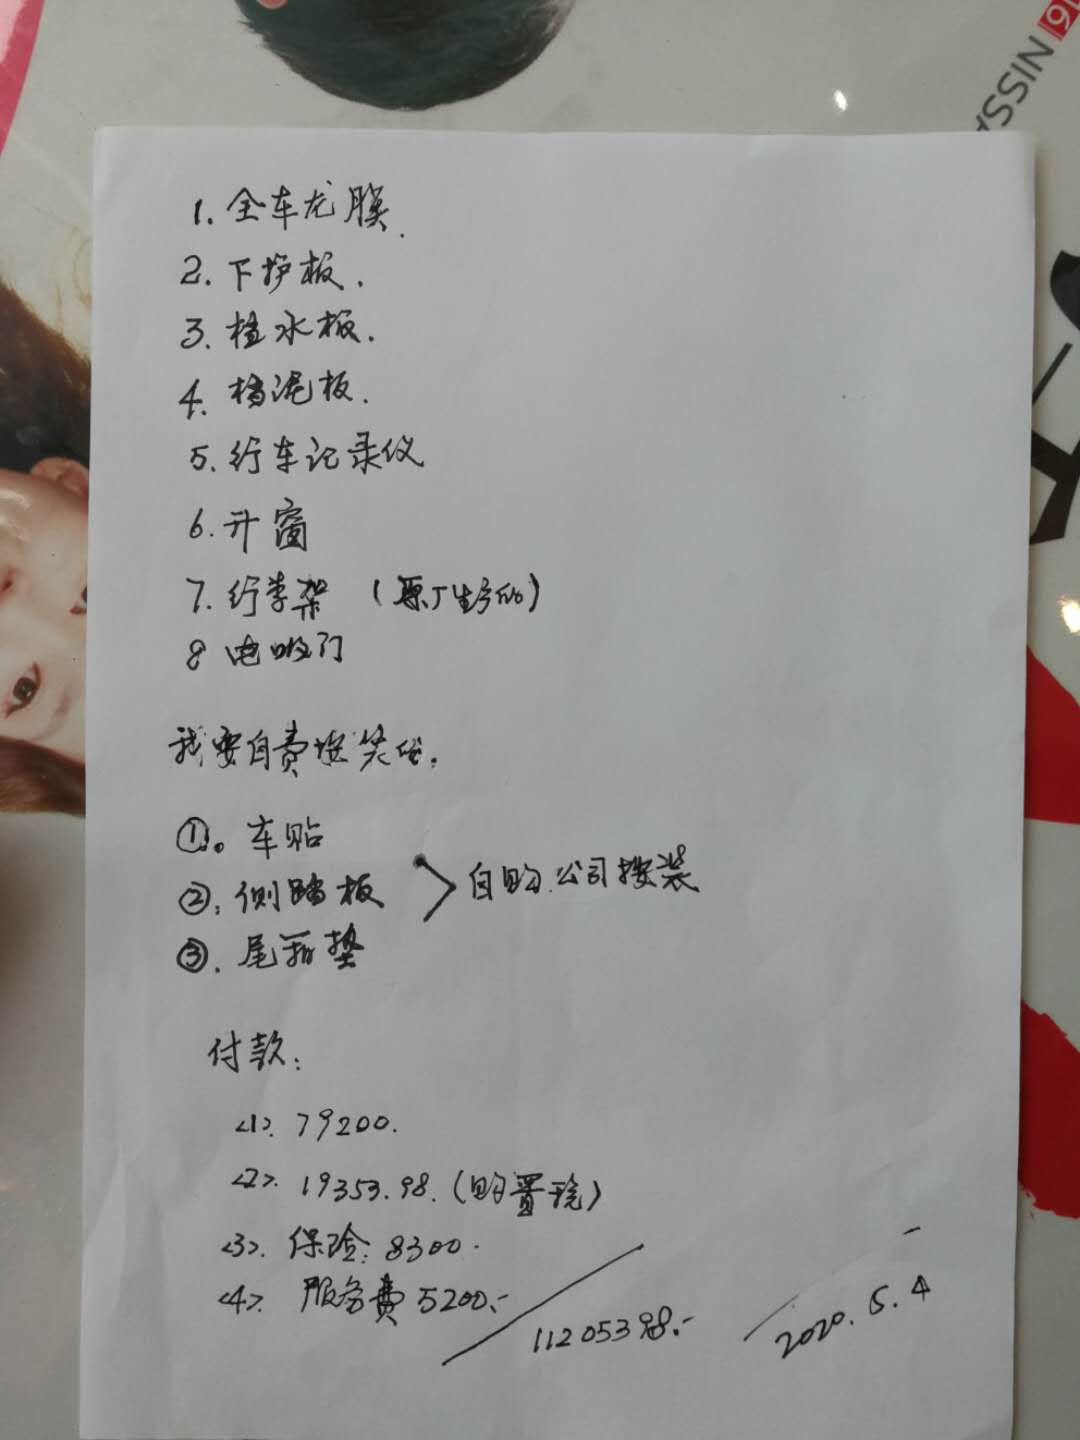 NISSA
1. 全车龙膜.
2. 下护板.
3. 档水板.
4. 档泥板.
5. 行车记录仪
6. 开窗
7. 行李架 (原厂生产的)
8 电吸门
我要自费按装
①. 车贴
②. 侧踏板 > 自购.公司按装
③. 尾箱垫
付款:
<1>. 79200.
<2>. 19353.98. (购置税)
<3>. 保险: 8300.
<4>. 服务费 5200.-
11205398.-
2020.5.4